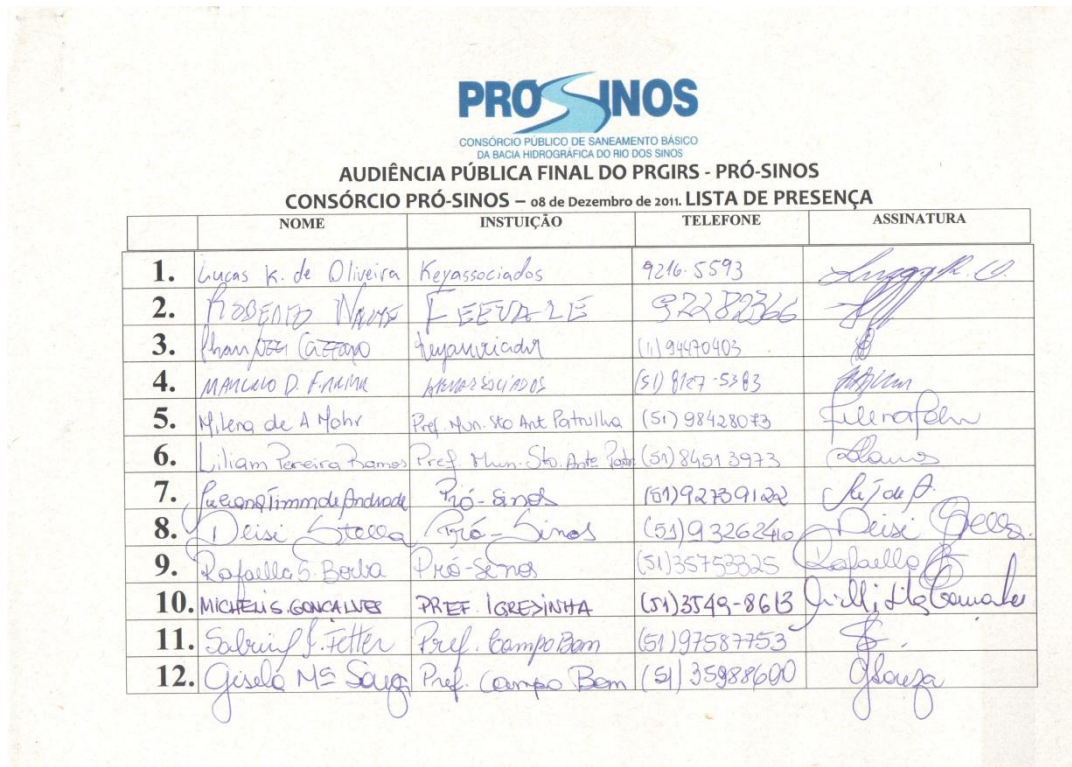 PRÓSINOS
CONSÓRCIO PÚBLICO DE SANEAMENTO BÁSICO
DA BACIA HIDROGRÁFICA DO RIO DOS SINOS
AUDIÊNCIA PÚBLICA FINAL DO PRGIRS - PRÓ-SINOS
CONSÓRCIO PRÓ-SINOS – 08 de Dezembro de 2011. LISTA DE PRESENÇA
NOME INSTUIÇÃO TELEFONE ASSINATURA
1. Lucas K. de Oliveira Keyassociados 9216-5593
2. ROBERTO FEEVALE 92282366
3. (11) 94470403
4. MARCELO D. (51) 8127-5383
5. Milena de A Mohr Pref. Mun. Sto Ant Patrulha (51) 98428073
6. Liliam Pereira Ramos Pref Mun. Sto. Ant. (51) 84513973
7. Timm de Andrade Pró-Sinos (51) 92739122
8. Deisi Stella Pró-Sinos (51) 93262410 Deisi Stella.
9. Rafaella S. Borba Pró-Sinos (51) 35753325 Rafaella
10. MICHELI S. GONCALVES PREF. IGREJINHA (51) 3549-8613
11. Fetter Pref. Campo Bom (51) 97587753
12. Gisela Mª Souza Pref. Campo Bom (51) 35988600 GSouza